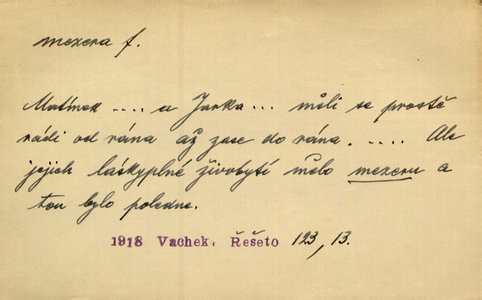 mezera f.
Matínek .... a Jarka... měli se prostě
rádi od rána až zase do rána. .... Ale
jejich láskyplné živobytí mělo mezeru a
tou bylo poledne.
1918 Vachek, Řešeto 123, 13.